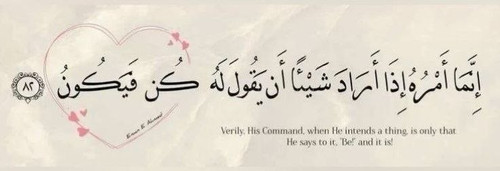 إِنَّمَا أَمْرُهُ إِذَا أَرَادَ شَيْئًا أَن يَقُولَ لَهُ كُن فَيَكُونُ ٨٢
Verily, His Command, when He intends a thing, is only that
He says to it, 'Be!' and it is!